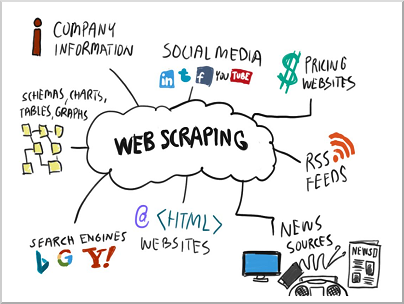 i
COMPANY
INFORMATION
SOCIAL MEDIA
in t f YOUTUBE
$
PRICING
WEBSITES
SCHEMAS, CHARTS,
TABLES, GRAPHS
WEB SCRAPING
RSS
FEEDS
@ <HTML>
WEBSITES
NEWS
SOURCES
NEWS
SEARCH ENGINES
b G Y!